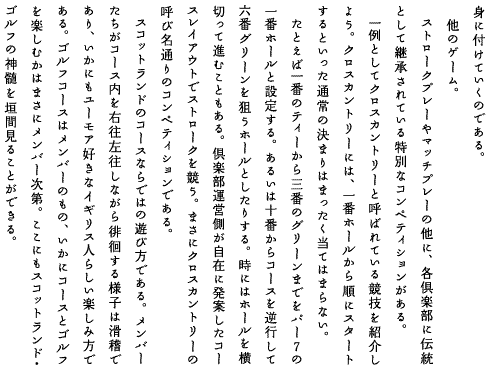 身に付けていくのである。
他のゲーム。
ストロークプレーやマッチプレーの他に、各倶楽部に伝統
として継承されている特別なコンペティションがある。
一例としてクロスカントリーと呼ばれている競技を紹介し
よう。クロスカントリーには、一番ホールから順にスタート
するといった通常の決まりはまったく当てはまらない。
たとえば一番のティーから三番のグリーンまでをパー7の
一番ホールと設定する。あるいは十番からコースを逆行して
六番グリーンを狙うホールとしたりする。時にはホールを横
切って進むこともある。倶楽部運営側が自在に発案したコー
スレイアウトでストロークを競う。まさにクロスカントリーの
呼び名通りのコンペティションである。
スコットランドのコースならではの遊び方である。メンバー
たちがコース内を右往左往しながら徘徊する様子は滑稽で
あり、いかにもユーモア好きなイギリス人らしい楽しみ方で
ある。ゴルフコースはメンバーのもの、いかにコースとゴルフ
を楽しむかはまさにメンバー次第。ここにもスコットランド・
ゴルフの神髄を垣間見ることができる。